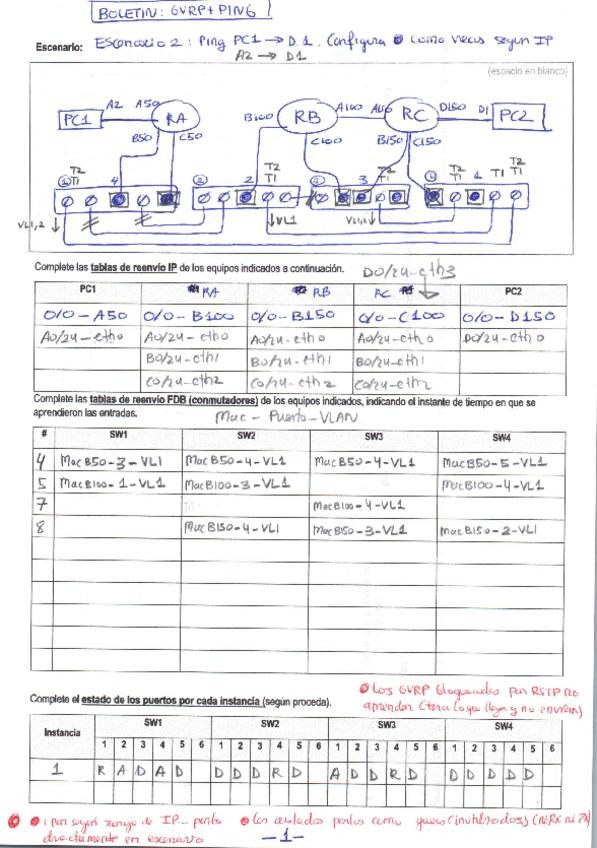 BOLETIN: GVRP + PING
Escenario: Escenario 2: Ping PC1 → D.1. Configura como vecus según IP
A2 → D1
(espacio en blanco)
PC1 A2 A50 RA B100 RB A100 A150 RC D150 D1 PC2
B50 C50 C100 B150 C150
T2 T2 T2 T2 T2
T1 4 2 T1 3 T1 T1 1 T1 T1
VL1,2 VL1 VL1,2
Complete las tablas de reenvío IP de los equipos indicados a continuación. D0/24-eth3
PC1 RA RB RC PC2
0/0-A50 0/0-B100 0/0-B150 0/0-C100 0/0-D150
A0/24-eth0 A0/24-eth0 A0/24-eth0 A0/24-eth0 D0/24-eth0
B0/24-eth1 B0/24-eth1 B0/24-eth1
C0/24-eth2 C0/24-eth2 C0/24-eth2
Complete las tablas de reenvío FDB (conmutadores) de los equipos indicados, indicando el instante de tiempo en que se
aprendieron las entradas. Mac - Puerto - VLAN
# SW1 SW2 SW3 SW4
4 MacB50-3-VL1 MacB50-4-VL1 MacB50-4-VL1 MacB50-5-VL1
5 MacB100-1-VL1 MacB100-3-VL1 MacB100-4-VL1
7 MacB100-4-VL1
8 MacB150-4-VL1 MacB150-3-VL1 MacB150-2-VL1
Los GVRP bloqueados por RSTP no
Complete el estado de los puertos por cada instancia (según proceda). aprenden (tira lo que llega y no envían)
Instancia SW1 SW2 SW3 SW4
1 2 3 4 5 6 1 2 3 4 5 6 1 2 3 4 5 6 1 2 3 4 5 6
1 R A D A D D D D R D A D D R D D D D D D
: pon según rango de IP... ponlo Los aislados ponlos como (inutilizados) (ni RX ni TX)
directamente en escenario
-1-